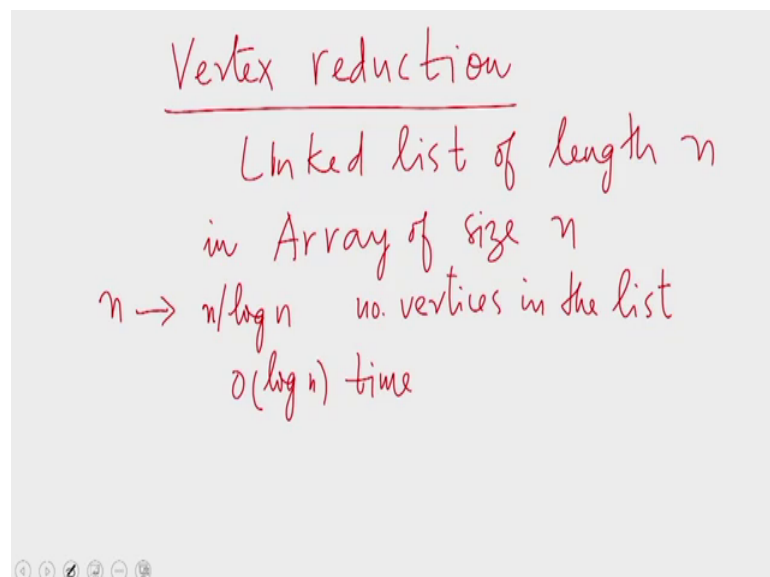 Vertex reduction
Linked list of length n
in Array of size n
n → n/log n no. vertices in the list
O(log n) time